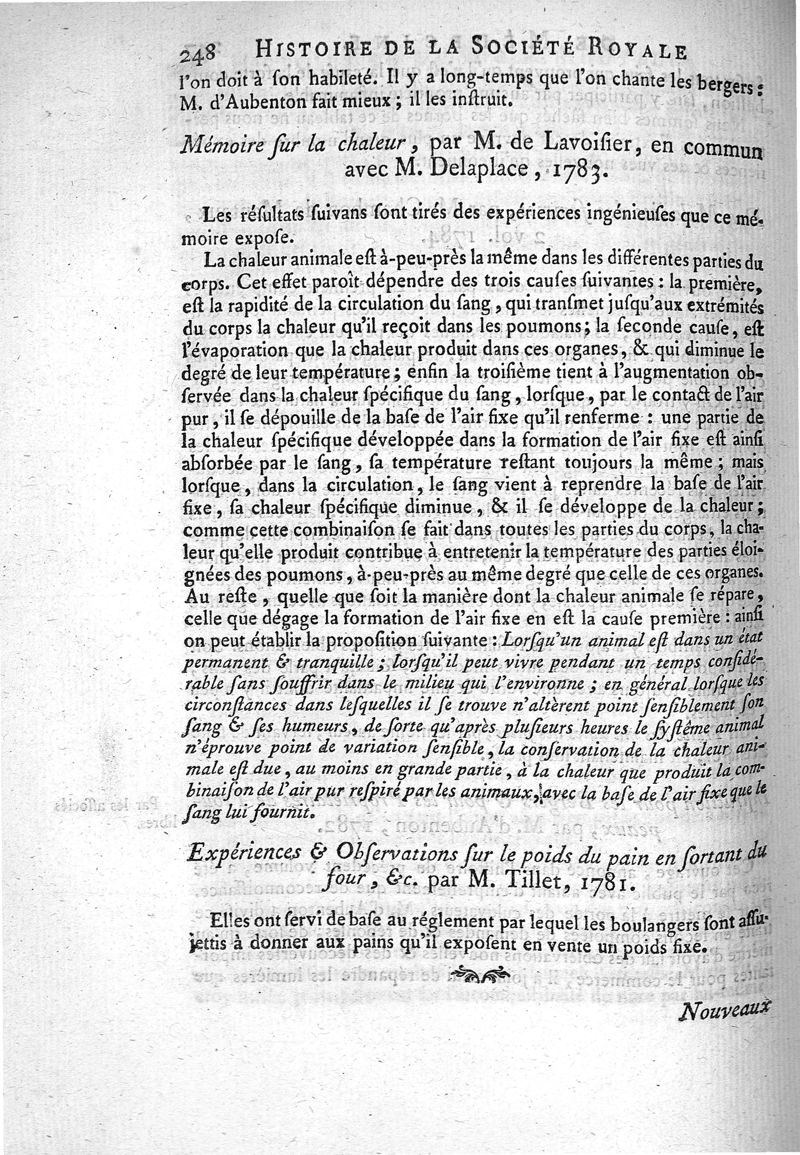 248 HISTOIRE DE LA SOCIÉTÉ ROYALE
l'on doit à ſon habileté. Il y a long-temps que l'on chante les bergers :
M. d'Aubenton fait mieux ; il les inſtruit.
Mémoire ſur la chaleur, par M. de Lavoiſier, en commun
avec M. Delaplace, 1783.
Les réſultats ſuivans ſont tirés des expériences ingénieuſes que ce mé-
moire expoſe.
La chaleur animale eſt à-peu-près la même dans les différentes parties du
corps. Cet effet paroît dépendre des trois cauſes ſuivantes : la première,
eſt la rapidité de la circulation du ſang, qui tranſmet juſqu'aux extrémités
du corps la chaleur qu'il reçoit dans les poumons; la ſeconde cauſe, eſt
l'évaporation que la chaleur produit dans ces organes, & qui diminue le
degré de leur température ; enfin la troiſième tient à l'augmentation ob-
ſervée dans la chaleur ſpécifique du ſang, lorſque, par le contact de l'air
pur, il ſe dépouille de la baſe de l'air fixe qu'il renferme : une partie de
la chaleur ſpécifique développée dans la formation de l'air fixe eſt ainſi
abſorbée par le ſang, ſa température reſtant toujours la même ; mais
lorſque, dans la circulation, le ſang vient à reprendre la baſe de l'air
fixe, ſa chaleur ſpécifique diminue, & il ſe développe de la chaleur ;
comme cette combinaiſon ſe fait dans toutes les parties du corps, la cha-
leur qu'elle produit contribue à entretenir la température des parties éloi-
gnées des poumons, à-peu-près au même degré que celle de ces organes.
Au reſte, quelle que ſoit la manière dont la chaleur animale ſe répare,
celle que dégage la formation de l'air fixe en eſt la cauſe première : ainſi
on peut établir la propoſition ſuivante : Lorſqu'un animal eſt dans un état
permanent & tranquille ; lorſqu'il peut vivre pendant un temps conſidé-
rable ſans ſouffrir dans le milieu qui l'environne ; en général lorſque les
circonſtances dans leſquelles il ſe trouve n'altèrent point ſenſiblement ſon
ſang & ſes humeurs, de ſorte qu'après pluſieurs heures le ſyſtême animal
n'éprouve point de variation ſenſible, la conſervation de la chaleur ani-
male eſt due, au moins en grande partie, à la chaleur que produit la com-
binaiſon de l'air pur reſpiré par les animaux, avec la baſe de l'air fixe que le
ſang lui fournit.
Expériences & Obſervations ſur le poids du pain en ſortant du
four, &c. par M. Tillet, 1781.
Elles ont ſervi de baſe au réglement par lequel les boulangers ſont aſſu-
jettis à donner aux pains qu'il expoſent en vente un poids fixe.
Nouveaux